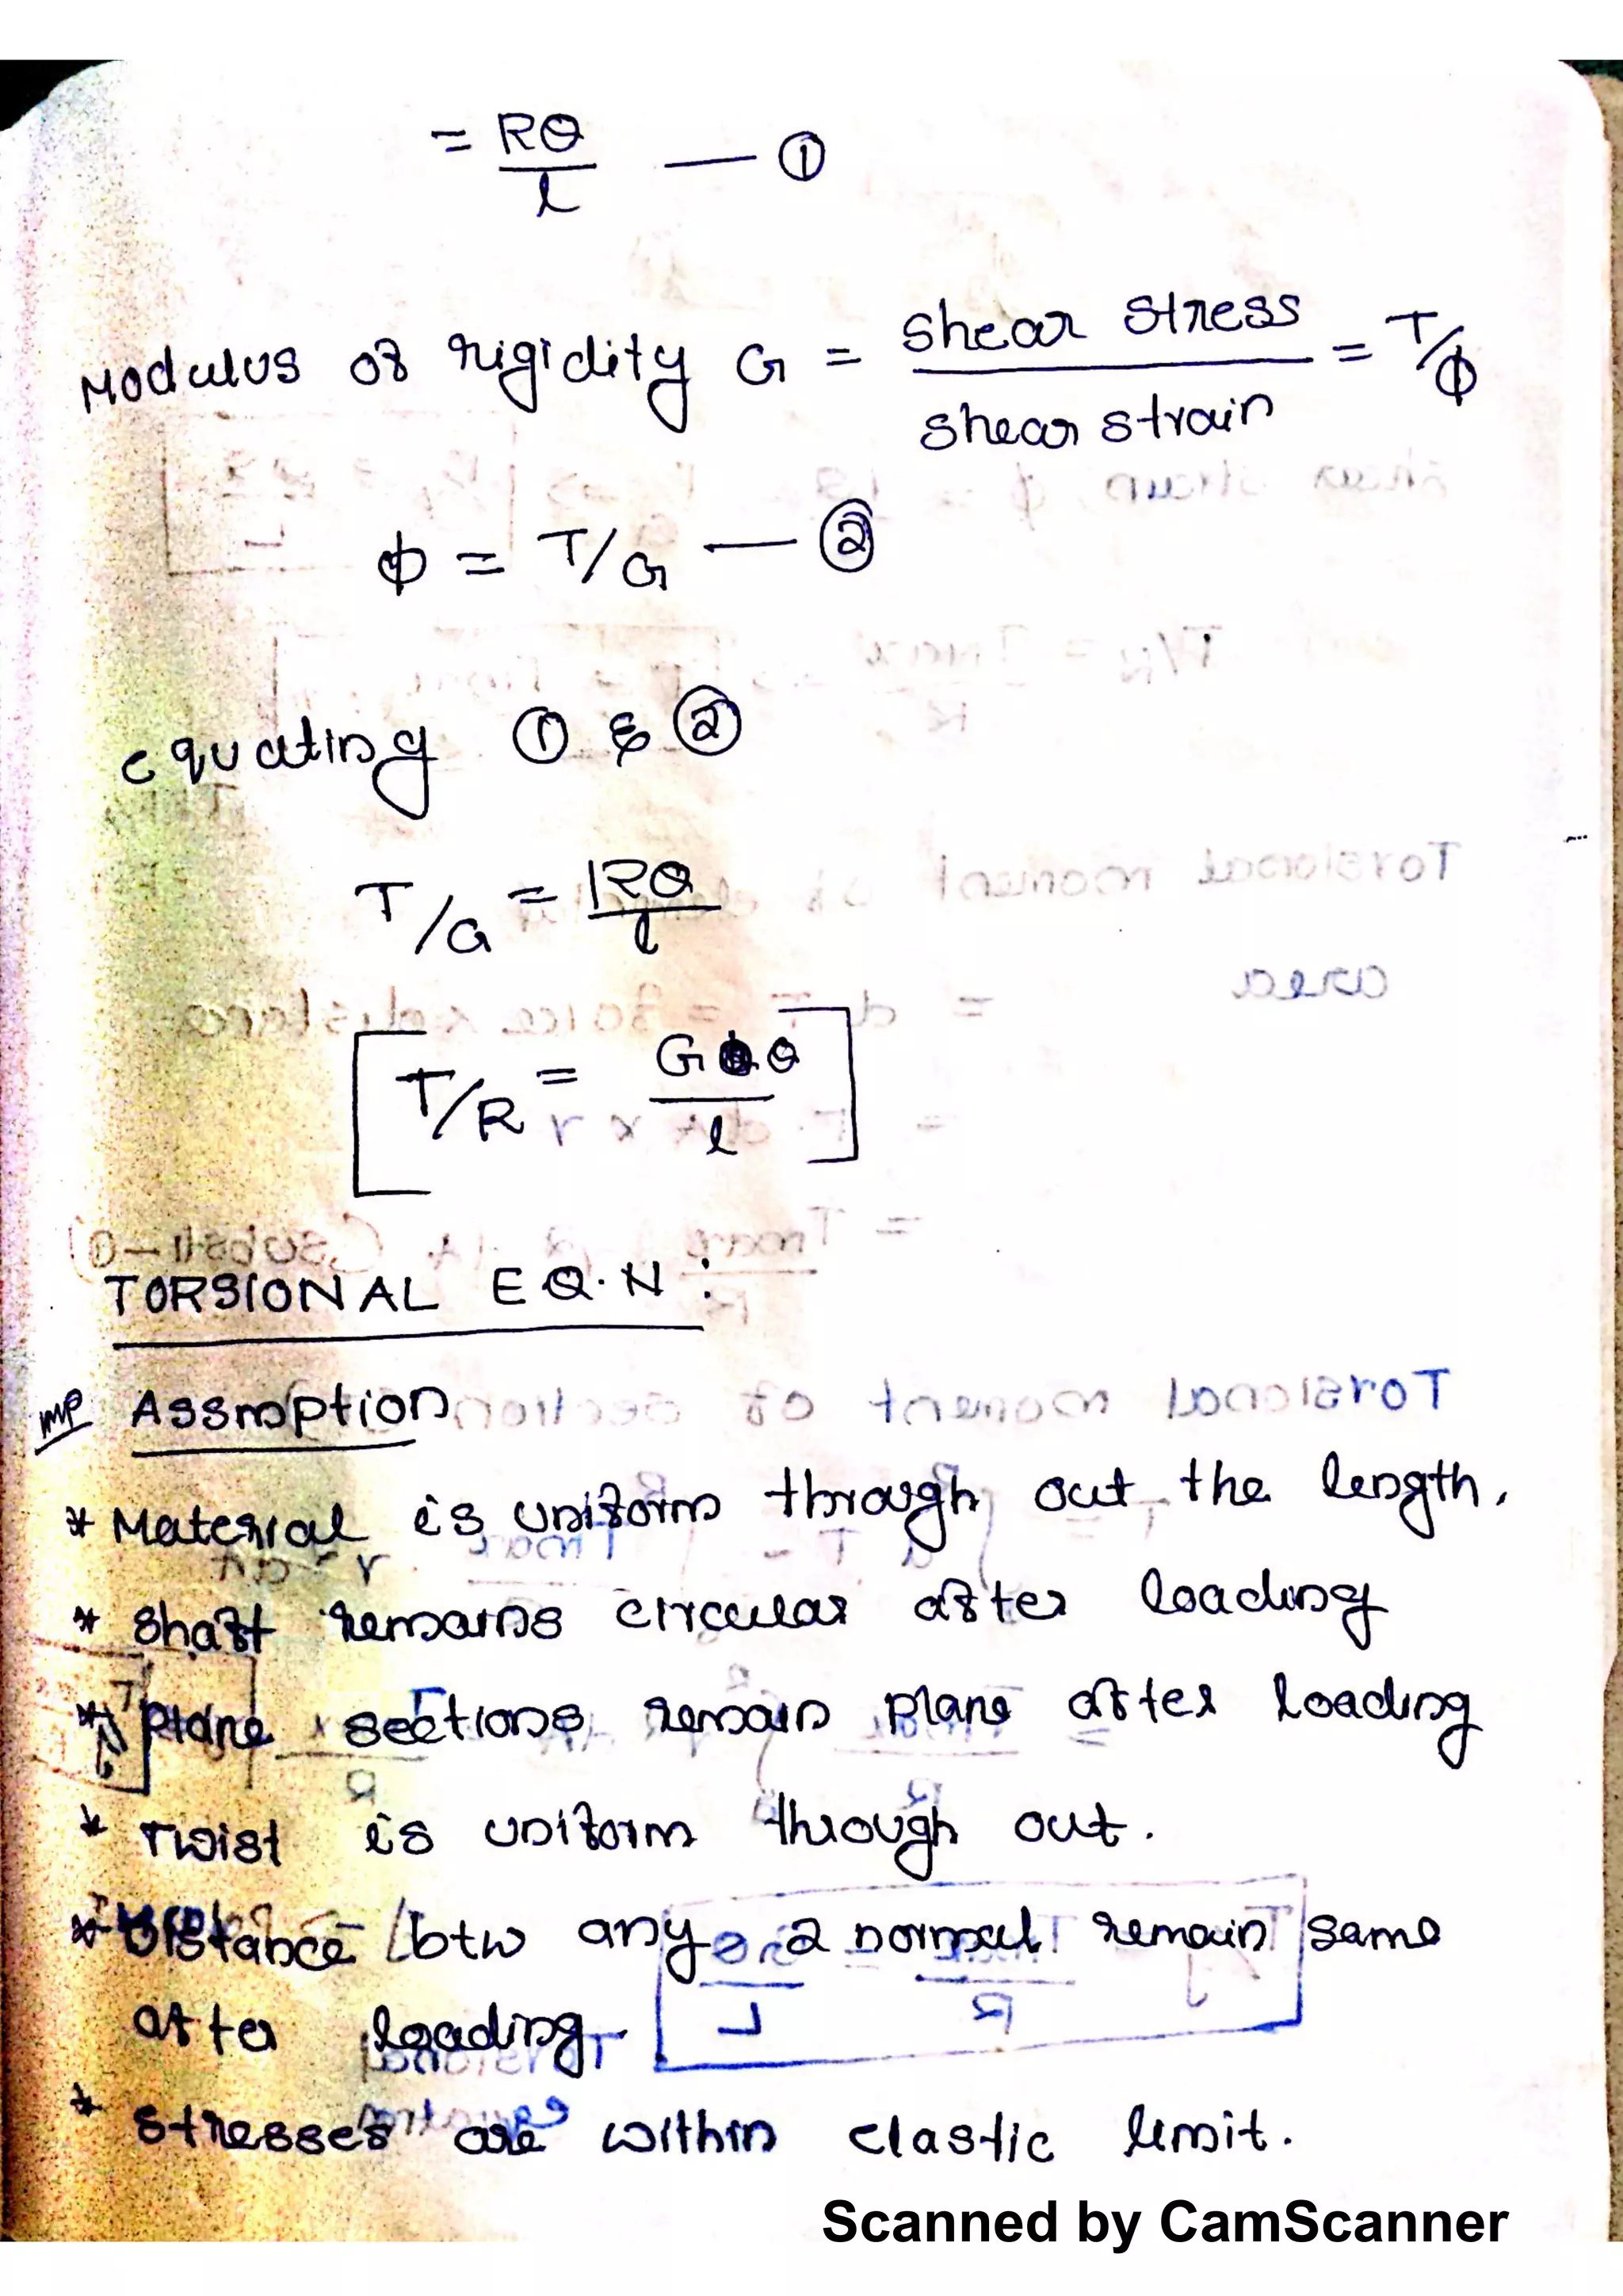 = Rθ/l — ①
Modulus of rigidity G = shear stress/shear strain = τ/ϕ
ϕ = τ/G — ②
equating ① & ②
τ/G = Rθ/l
[τ/R = Gθ/l]
TORSIONAL EQ.N :
imp Assmption
* Material is uniform through out the length.
* shaft remains circular after loading
* plane sections remain plane after loading
* Twist is uniform through out.
* Distance btw any 2 normal remain same
after loading.
* stresses are within elastic limit.
Scanned by CamScanner